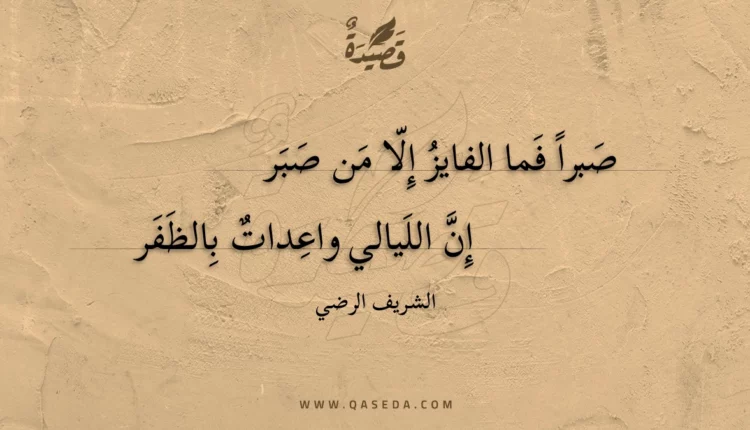 قَصِيدَةٌ
صَبراً فَما الفايزُ إِلّا مَن صَبَر
إِنَّ اللَيالي واعِداتٌ بِالظَفَر
الشريف الرضي
WWW.QASEDA.COM